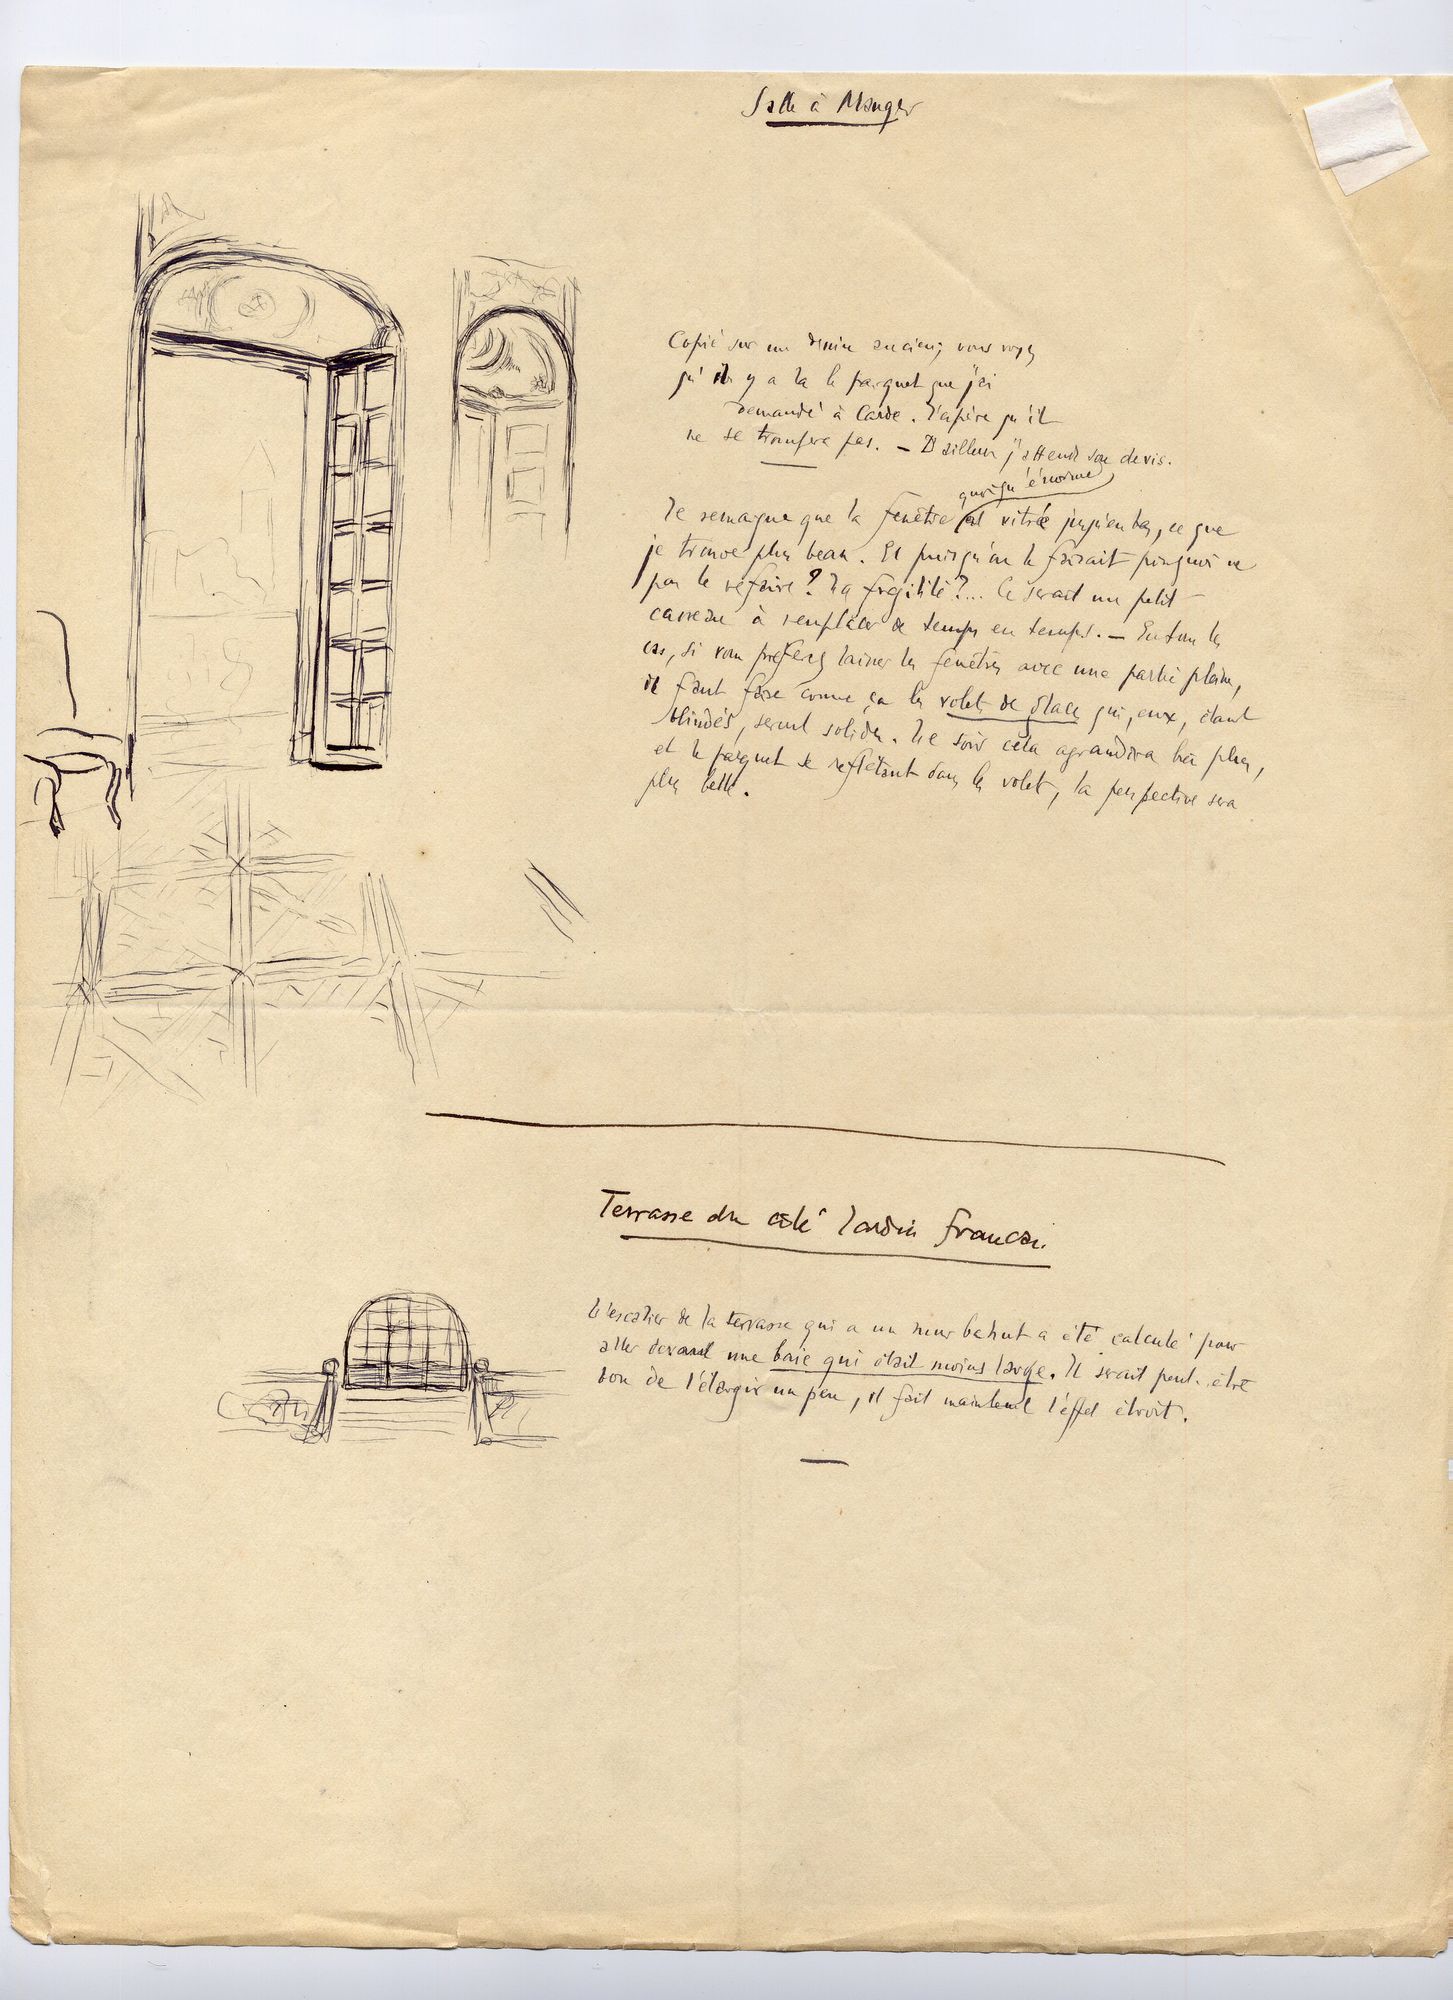 Salle à Manger
Copié sur un dessin ancien, vous voyez
qu'il y a là le parquet que j'ai
demandé à Carde. J'espère qu'il
ne se trompera pas. — D'ailleurs j'attends son devis.
quoiqu'énorme
Je remarque que la fenêtre est vitrée jusqu'en bas, ce que
je trouve plus beau. Et puisqu'on le faisait pourquoi ne
pas le refaire? La fragilité?... Ce serait un petit
carreau à remplacer de temps en temps. — En tous les
cas, si vous préférez laisser les fenêtres avec une partie pleine,
il faut faire comme ça les volets de glace qui, eux, étant
blindés, seront solides. Le soir cela agrandira la pièce,
et le parquet se reflétant dans les volets, la perspective sera
plus belle.
Terrasse du côté Jardin français
L'escalier de la terrasse qui a un mur bahut a été calculé pour
aller devant une baie qui était moins large. Il serait peut-être
bon de l'élargir un peu, il fait maintenant l'effet étroit.